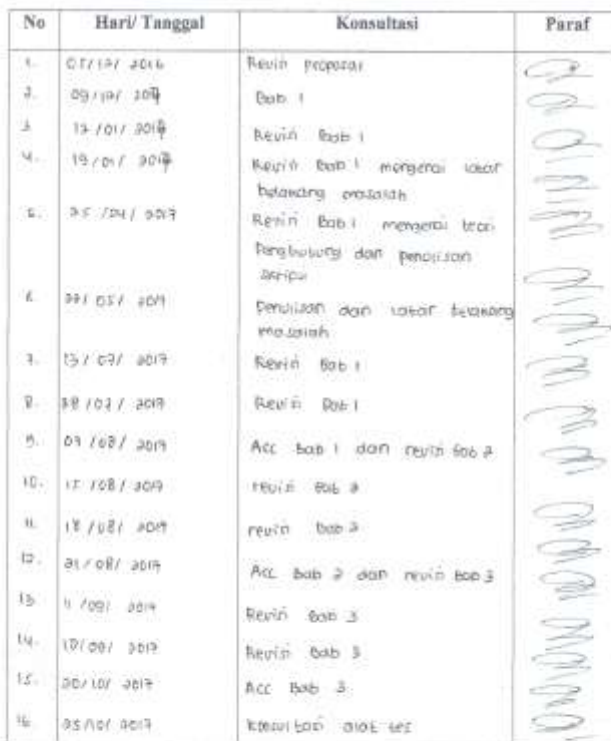 No Hari/ Tanggal Konsultasi Paraf
1. Revisi proposal
2. 09/12/ Bab 1
3. 12/01/ 2017 Revisi Bab 1
4. 19/01/ 2017 Revisi Bab 1 mengenai latar
belakang masalah
5. 25/04/ 2017 Revisi Bab 1 mengenai teori
Penghubung dan penulisan
skripsi
6. Penulisan dan latar belakang
masalah
7. 13/07/ 2017 Revisi Bab 1
8. 2017 Revisi Bab 1
9. 2017 Acc Bab 1 dan revisi Bab 2
10. /08/ 2017 revisi Bab 2
11. 18/08/ 2017 revisi bab 2
12. /08/ 2017 Acc Bab 2 dan revisi Bab 3
13. 2017 Revisi Bab 3
14. 2017 Revisi Bab 3
15. 20/10/ 2017 Acc Bab 3
16. 25/10/ 2017 Konsultasi alat tes